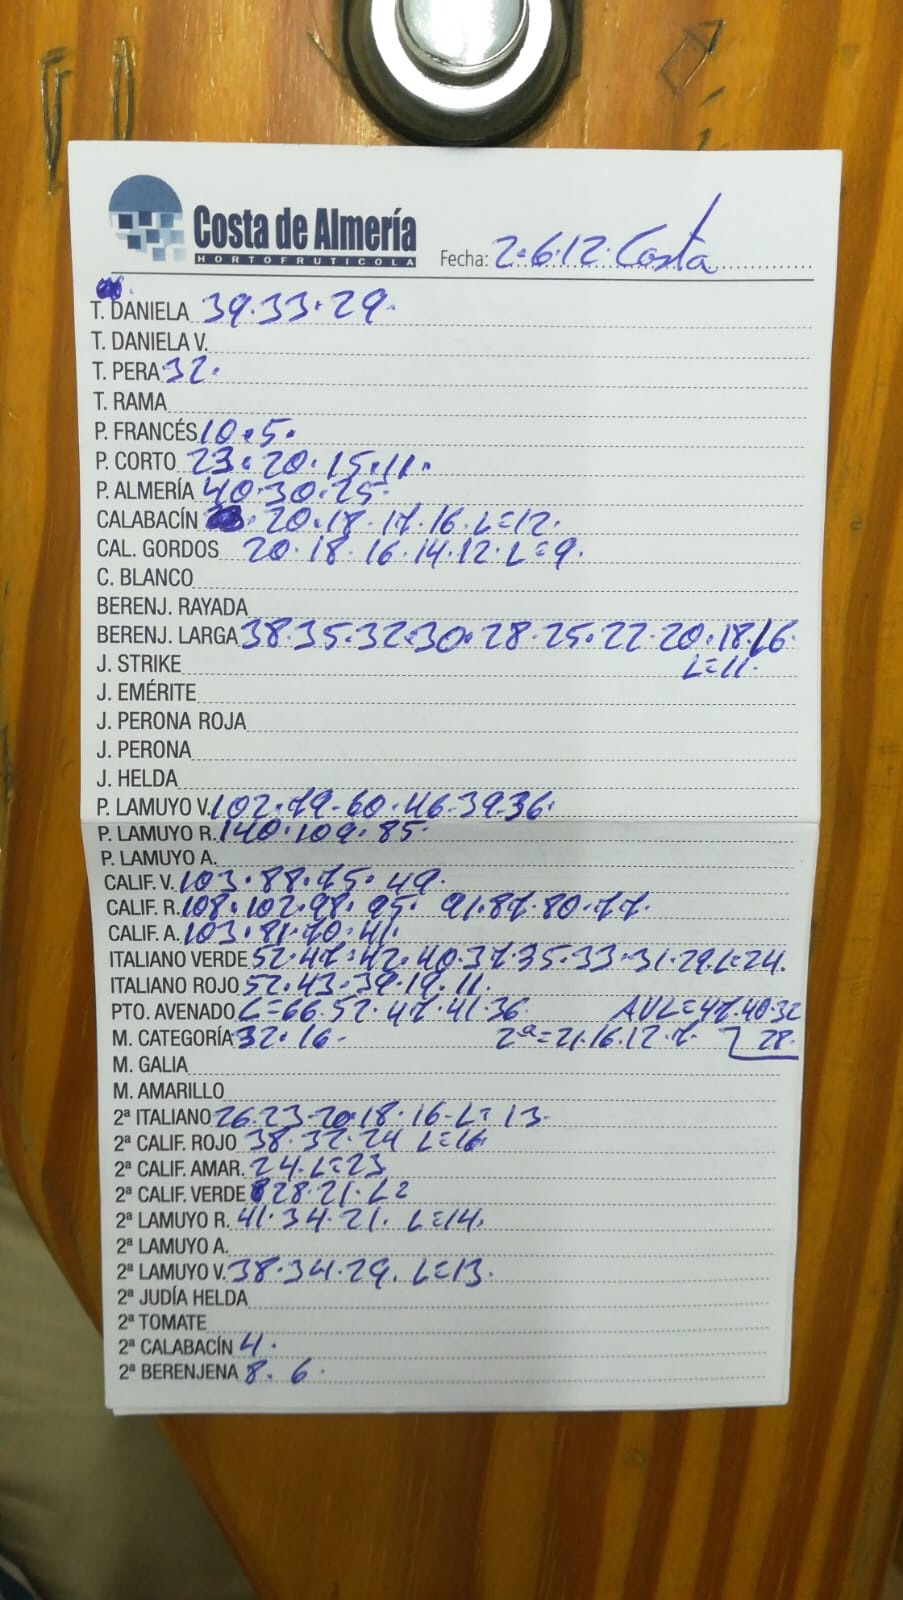 Costa de Almería
HORTOFRUTICOLA
Fecha: 2-6.12. Costa
T. DANIELA 39.33.29.
T. DANIELA V.
T. PERA 32.
T. RAMA
P. FRANCÉS 10.5.
P. CORTO 23.20.15.11.
P. ALMERÍA 40.30.25.
CALABACÍN 20.18.17.16.L=12.
CAL. GORDOS 20.18.16.14.12.L=9.
C. BLANCO
BERENJ. RAYADA
BERENJ. LARGA 38.35.32.30.28.25.22.20.18.16.
L=11.
J. STRIKE
J. EMÉRITE
J. PERONA ROJA
J. PERONA
J. HELDA
P. LAMUYO V. 102.79.60.46.39.36.
P. LAMUYO R. 140.109.85.
P. LAMUYO A.
CALIF. V. 103.88.75.49.
CALIF. R. 108.102.98.95. 91.87.80.77.
CALIF. A. 103.81.70.41.
ITALIANO VERDE 52.47.42.40.37.35.33.31.29.L=24.
ITALIANO ROJO 52.43.39.19.11.
PTO. AVENADO L=66.52.47.41.36 AVL=47.40.32
M. CATEGORÍA 32.16. 2ª=21.16.12.7. 28.
M. GALIA
M. AMARILLO
2ª ITALIANO 26.23.20.18.16-L=13.
2ª CALIF. ROJO 38.32.24 L=16
2ª CALIF. AMAR. 24.L=23
2ª CALIF. VERDE 28.21.L=
2ª LAMUYO R. 41.34.21. L=14.
2ª LAMUYO A.
2ª LAMUYO V. 38.34.29. L=13.
2ª JUDÍA HELDA
2ª TOMATE
2ª CALABACÍN 4.
2ª BERENJENA 8.6.